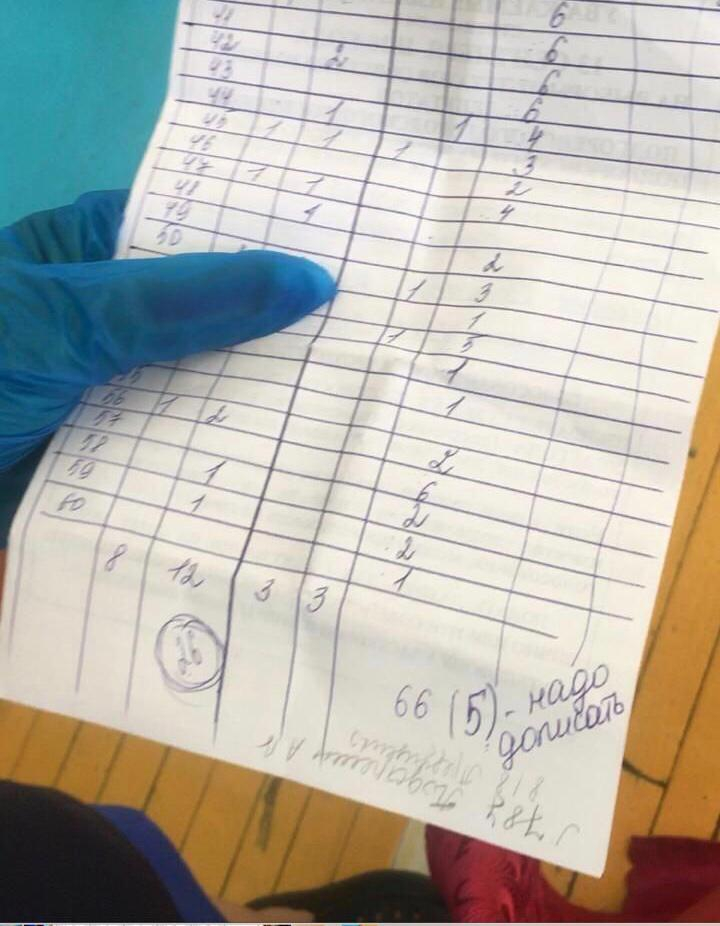 41 6
42 2 6
43 6
44 1 6
45 1 1 1 4
46 1 3
47 1 1 2
48 1 4
49
50 2
1 3
1
1 5
55 1
56 1 2 1
57
58 2
59 1 6
60 1 2
2
8 12 3 3 1
26
66 (5) - надо
дописать